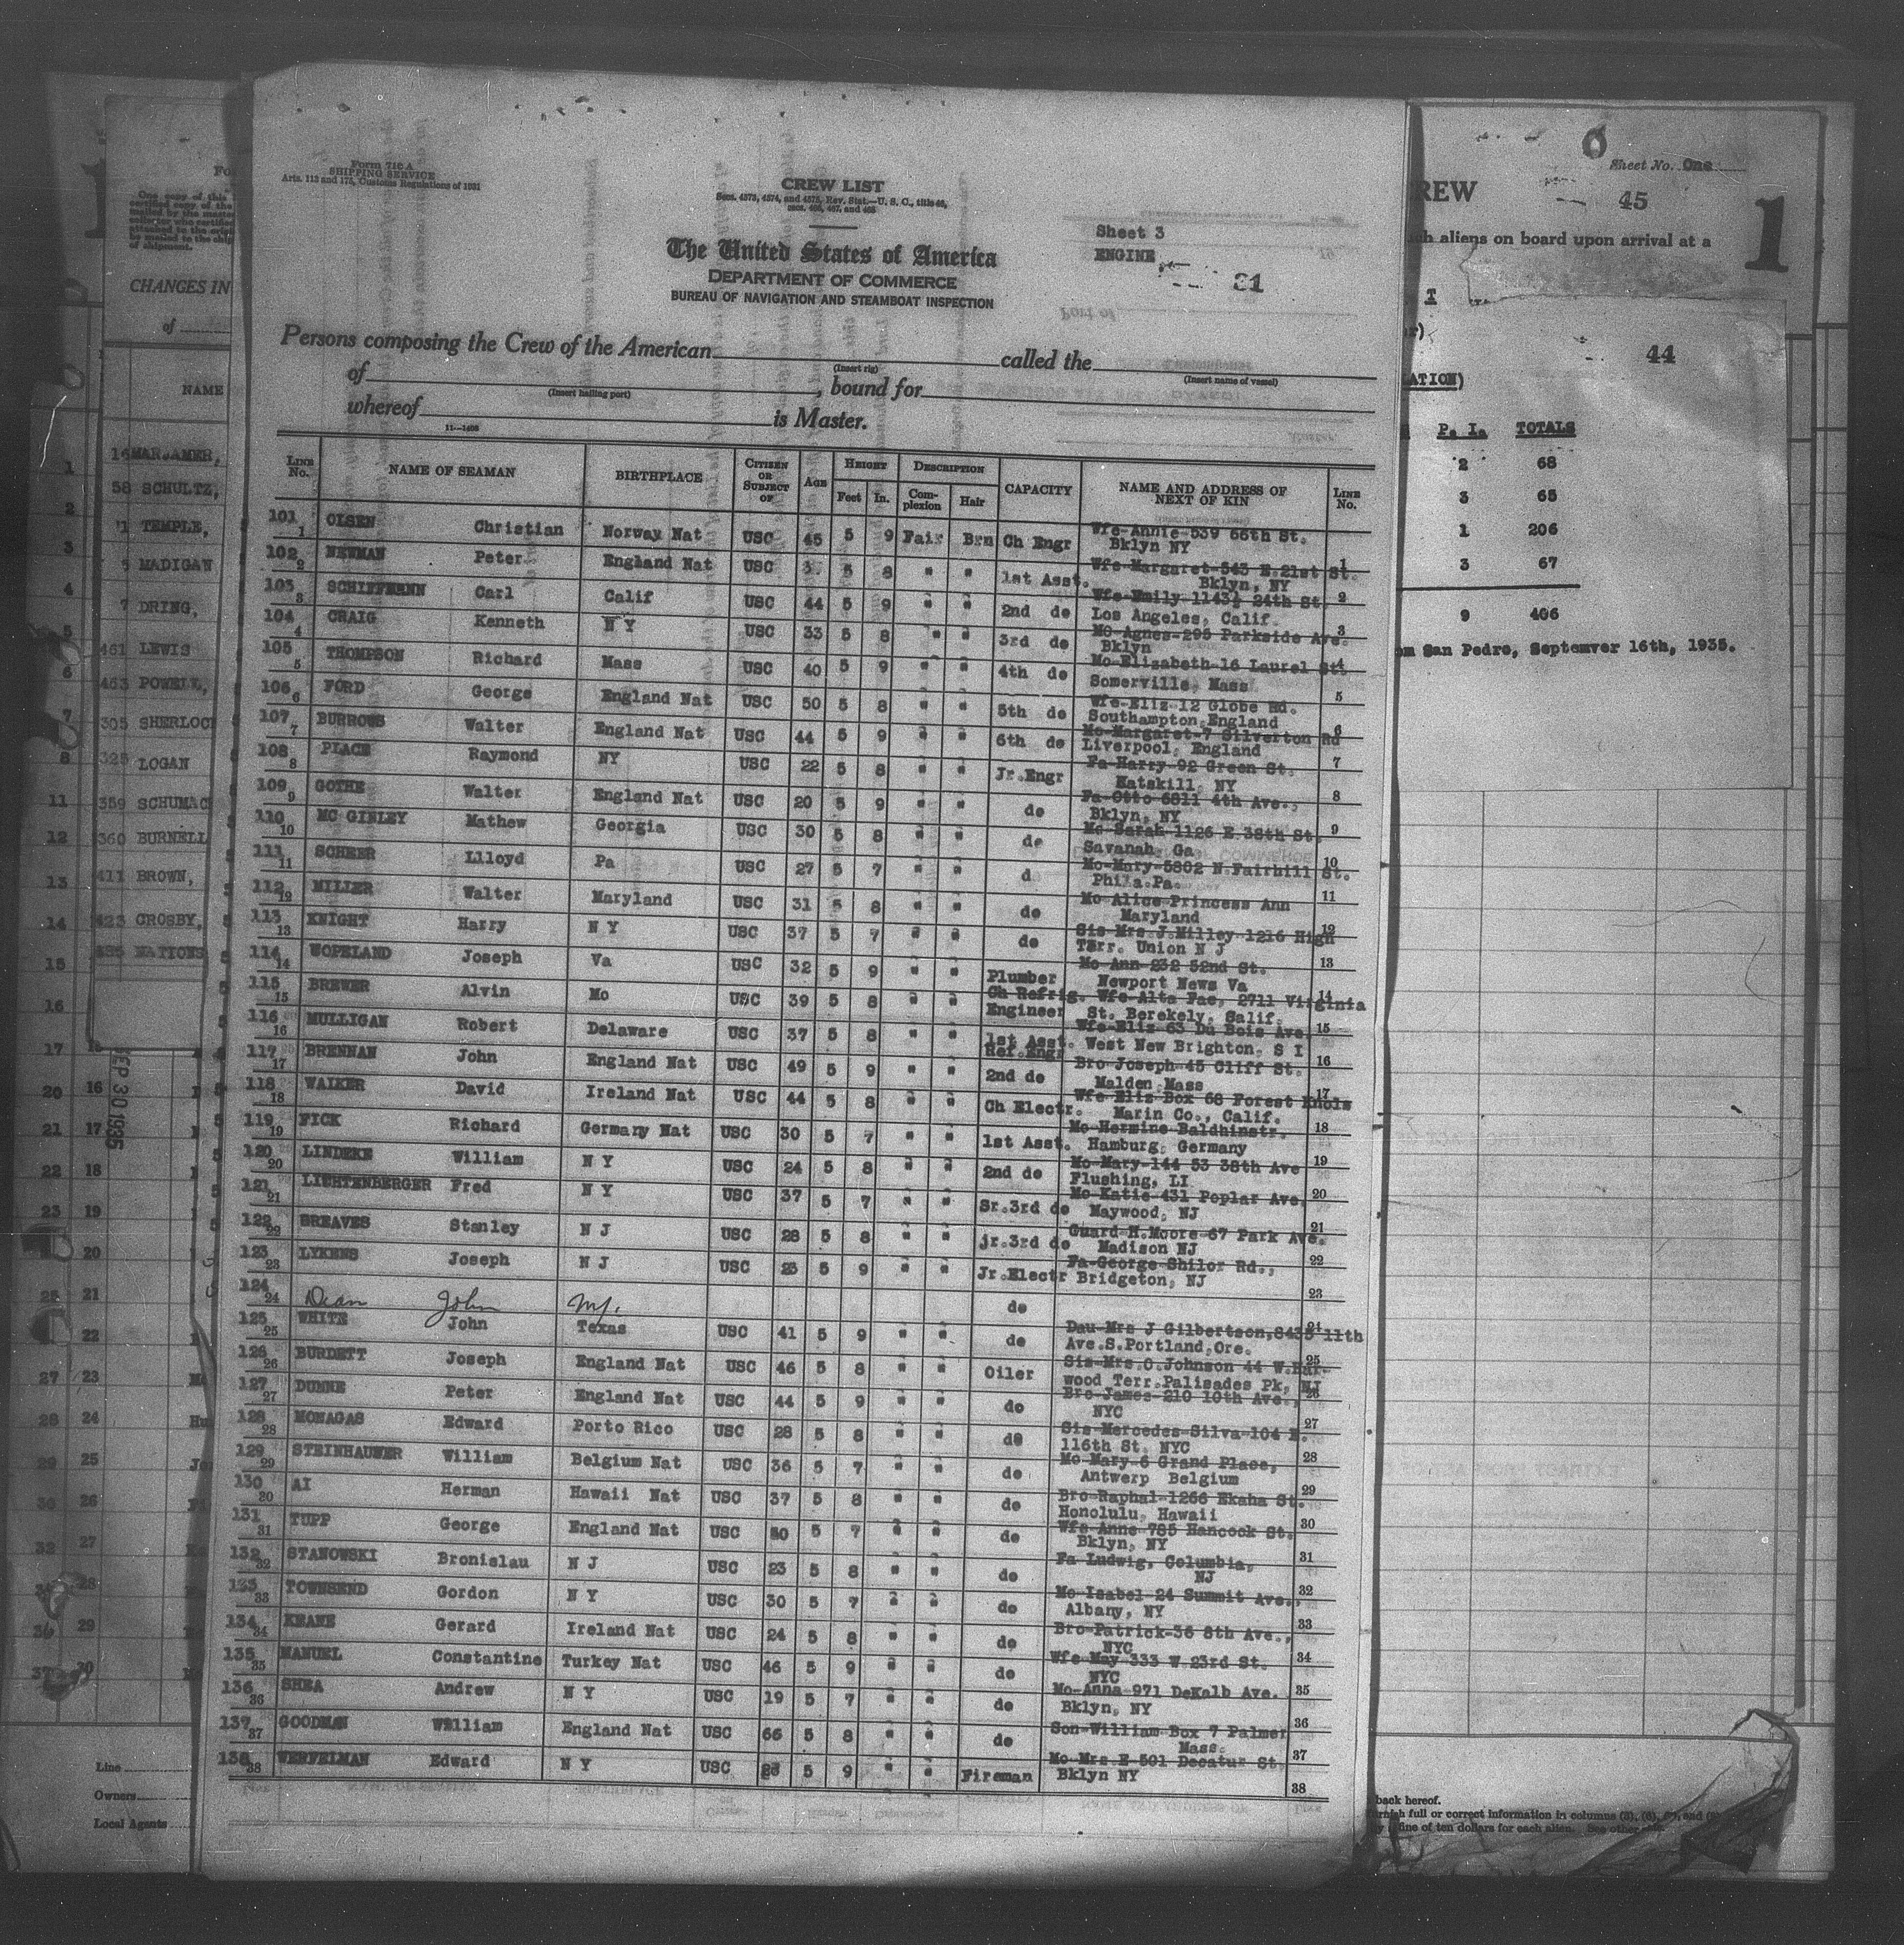 Form 710 A
SHIPPING SERVICE
Arts. 113 and 175, Customs Regulations of 1931
CREW LIST
Secs. 4573, 4574, and 4575, Rev. Stat.—U. S. C., title 46,
secs. 466, 467, and 468
The United States of America
DEPARTMENT OF COMMERCE
BUREAU OF NAVIGATION AND STEAMBOAT INSPECTION
Sheet 3
ENGINE
31
Persons composing the Crew of the American called the
(Insert rig) (Insert name of vessel)
of , bound for
(Insert hailing port)
whereof is Master.
11—1408
LINE No. NAME OF SEAMAN BIRTHPLACE CITIZEN OR SUBJECT OF AGE HEIGHT Feet In. DESCRIPTION Complexion Hair CAPACITY NAME AND ADDRESS OF NEXT OF KIN LINE No.
101 1 OLSEN Christian Norway Nat USC 45 5 9 Fair Brn Ch Engr Wfe-Annie-539 55th St. Bklyn NY 1
102 2 NEWMAN Peter England Nat USC 5 8 " " 1st Asst. Wfe-Margaret-543 E.21st St. Bklyn, NY 2
103 3 SCHIFFMANN Carl Calif USC 44 5 9 " " 2nd do Wfe-Emily-1143½ 24th St. Los Angeles, Calif. 3
104 4 CRAIG Kenneth N Y USC 33 5 8 " " 3rd do Mo-Agnes-295 Parkside Ave. Bklyn 4
105 5 THOMPSON Richard Mass USC 40 5 9 " " 4th do Mo-Elizabeth-16 Laurel St. Somerville, Mass 5
106 6 FORD George England Nat USC 50 5 8 " " 5th do Wfe-Eliz-12 Globe Rd. Southampton, England 6
107 7 BURROWS Walter England Nat USC 44 5 9 " " 6th do Mo-Margaret-7 Silverton Rd Liverpool, England 7
108 8 PLACE Raymond NY USC 22 5 8 " " Jr.Engr Fa-Harry-92 Green St. Katskill, NY 8
109 9 GOTHE Walter England Nat USC 20 5 9 " " do Fa-Otto-6811 4th Ave., Bklyn, NY 9
110 10 MC GINLEY Mathew Georgia USC 30 5 8 " " do Mo-Sarah-1126 E.38th St. Savanah, Ga 10
111 11 SCHEER Llloyd Pa USC 27 5 7 " " d Mo-Mary-5802 N.Fairhill St. Phila.Pa. 11
112 12 MILLER Walter Maryland USC 31 5 8 " " do Mo-Alice-Princess Ann Maryland 12
113 13 KNIGHT Harry N Y USC 37 5 7 " " do Sis-Mrs.J.Milley-1216 High Terr. Union N J 13
114 14 WOPELAND Joseph Va USC 32 5 9 " " Plumber Mo-Ann-232 52nd St. Newport News Va 14
115 15 BREWER Alvin Mo USC 39 5 8 " " Ch Refrig. Engineer Wfe-Alta Fae, 2711 Virginia St. Berekely, Salif. 15
116 16 MULLIGAN Robert Delaware USC 37 5 8 " " 1st Asst. Ref.Engr Wfe-Eliz-63 Du Bois Ave. West New Brighton, S I 16
117 17 BRENNAN John England Nat USC 49 5 9 " " 2nd do Bro-Joseph-45 Cliff St. Malden, Mass 17
118 18 WALKER David Ireland Nat USC 44 5 8 " " Ch Electr. Wfe-Eliz-Box 68 Forest Knols Marin Co., Calif. 18
119 19 FICK Richard Germany Nat USC 30 5 7 " " 1st Asst. Mo-Hermine-Baldhinstr. Hamburg, Germany 19
120 20 LINDEKE William N Y USC 24 5 8 " " 2nd do Mo-Mary-144 53 38th Ave Flushing, LI 20
121 21 LICHTENBERGER Fred N Y USC 37 5 7 " " Sr.3rd do Mo-Katie-431 Poplar Ave. Maywood, NJ 21
122 22 BREAVES Stanley N J USC 28 5 8 " " jr.3rd do Guard-H.Moore-67 Park Ave. Madison NJ 22
123 23 LYKENS Joseph N J USC 23 5 9 " " Jr.Electr Fa-George-Shilor Rd., Bridgeton, NJ 23
124 24 Dean John do 24
125 25 WHITE John Texas USC 41 5 9 " " do Dau-Mrs J Gilbertson,8435 11th Ave.S.Portland,Ore. 25
126 26 BURDETT Joseph England Nat USC 46 5 8 " " Oiler Sis-Mrs.O.Johnson 44 W.Harwood Terr.Palisades Pk, NJ 26
127 27 DUNNE Peter England Nat USC 44 5 9 " " do Bro-James-210 10th Ave., NYC 27
128 28 MONAGAS Edward Porto Rico USC 28 5 8 " " do Sis-Mercedes-Silva-104 E. 116th St. NYC 28
129 29 STEINHAUWER William Belgium Nat USC 36 5 7 " " do Mo-Mary-6 Grand Place, Antwerp Belgium 29
130 20 AI Herman Hawaii Nat USC 37 5 8 " " do Bro-Raphal-1266 Ekaha St. Honolulu, Hawaii 30
131 31 TUPP George England Nat USC 40 5 7 " " do Wfe-Anne-785 Hancock St. Bklyn, NY 31
132 32 STANOWSKI Bronislau N J USC 23 5 8 " " do Fa-Ludwig, Columbia, NJ 32
133 33 TOWNSEND Gordon N Y USC 30 5 7 " " do Mo-Isabel-24 Summit Ave., Albany, NY 33
134 34 KEANE Gerard Ireland Nat USC 24 5 8 " " do Bro-Patrick-36 8th Ave., NYC 34
135 35 MANUEL Constantine Turkey Nat USC 46 5 9 " " do Wfe-May 333 W.23rd St. NYC 35
136 36 SHEA Andrew N Y USC 19 5 7 " " do Mo-Anna-971 DeKalb Ave. Bklyn, NY 36
137 37 GOODMAN William England Nat USC 66 5 8 " " do Son-William-Box 7 Palmer Mass. 37
138 38 WERFELMAN Edward N Y USC 5 9 " " Fireman Mo-Mrs.E-501 Decatur St. Bklyn NY 38
CHANGES IN
of
NAME
16 MARJAMER,
58 SCHULTZ,
TEMPLE,
MADIGAN
7 DRING,
461 LEWIS
463 POWELL,
305 SHERLOC
325 LOGAN
359 SCHUMAC
360 BURNELL
411 BROWN,
423 CROSBY,
NATIONS
SEP 30 1935
Line
Owners
Local Agents
Sheet No. One
REW
45
1
aliens on board upon arrival at a
44
ATION)
P. I. TOTALS
2 68
3 65
1 206
3 67
9 406
om San Pedro, Septemver 16th, 1935.
back hereof.
furnish full or correct information in columns
fine of ten dollars for each alien. See other